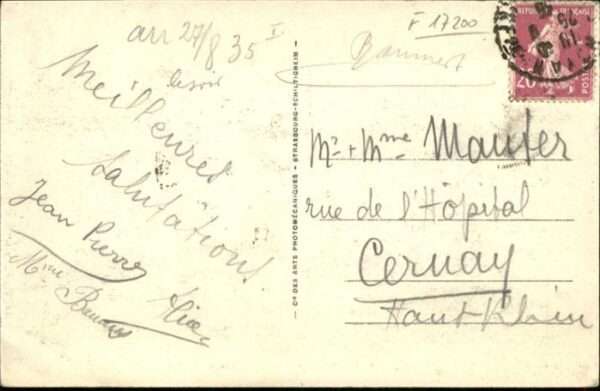 arr 27/8 35 I
le soir
Meilleures
Salutations
Jean Pierre
Mme
Cie DES ARTS PHOTOMÉCANIQUES - STRASBOURG-SCHILTIGHEIM
F 17200
RÉPUBLIQUE FRANÇAISE
20
POSTES
Mr + Mme Maurer
rue de l'Hôpital
Cernay
Haut Rhin